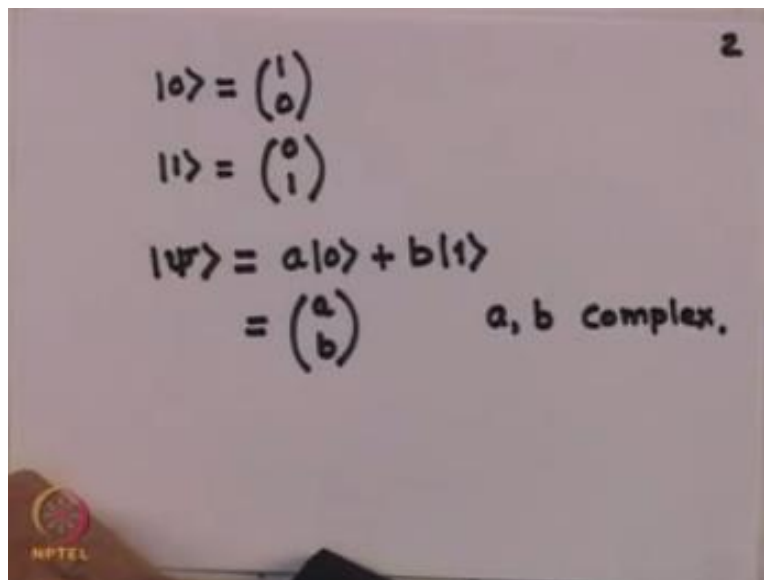 2
|0> = (1 0)
|1> = (0 1)
|Ψ> = a|0> + b|1>
= (a b) a, b complex.
NPTEL